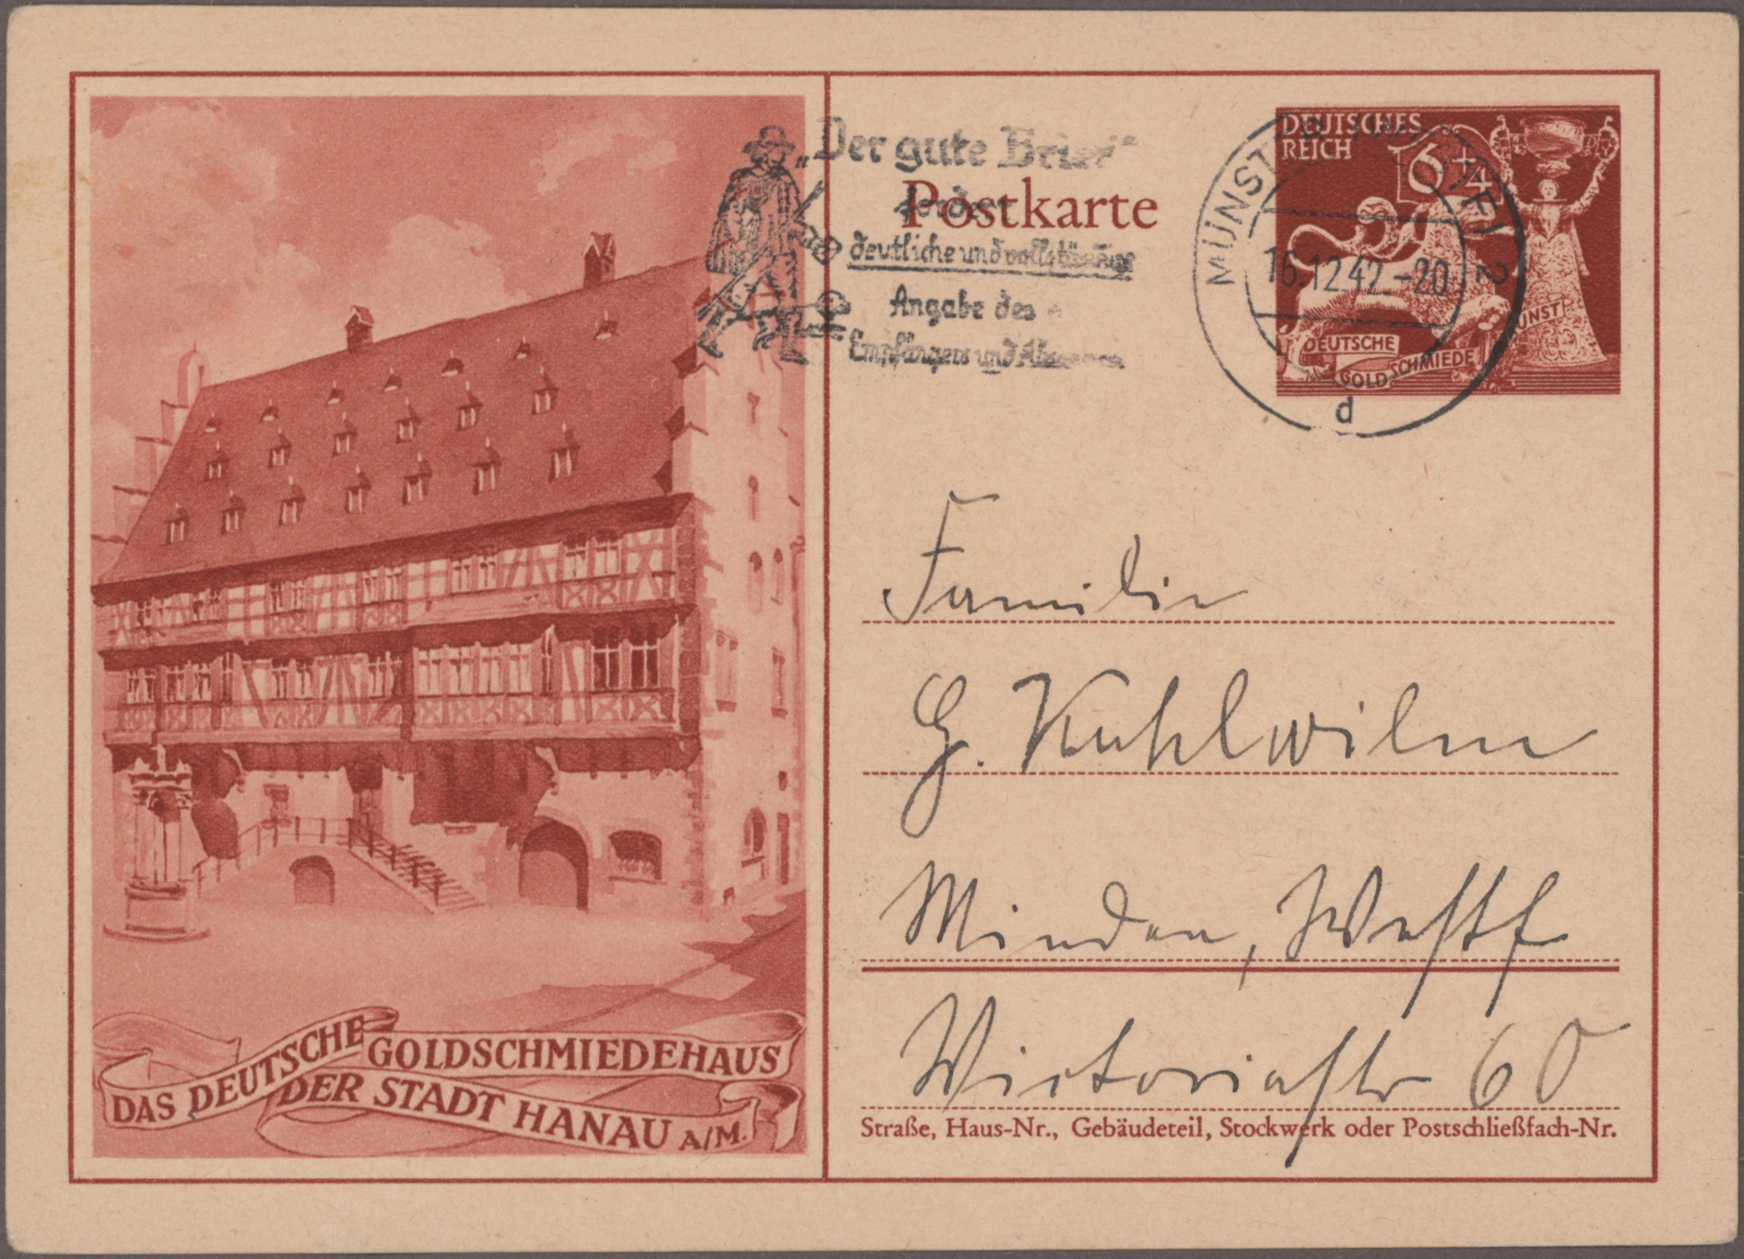 „Der gute Brief“
fordert
deutliche und vollständige
Angabe des
Empfängers und Absenders
Postkarte
DEUTSCHES
REICH
6+4
DEUTSCHE
GOLDSCHMIEDE
KUNST
MÜNSTER (WESTF) 2
16.12.42.-20
d
Familie
G. Kuhlwilm
Minden, Westf
Victoriastr 60
Straße, Haus-Nr., Gebäudeteil, Stockwerk oder Postschließfach-Nr.
DAS DEUTSCHE GOLDSCHMIEDEHAUS
DER STADT HANAU A/M.